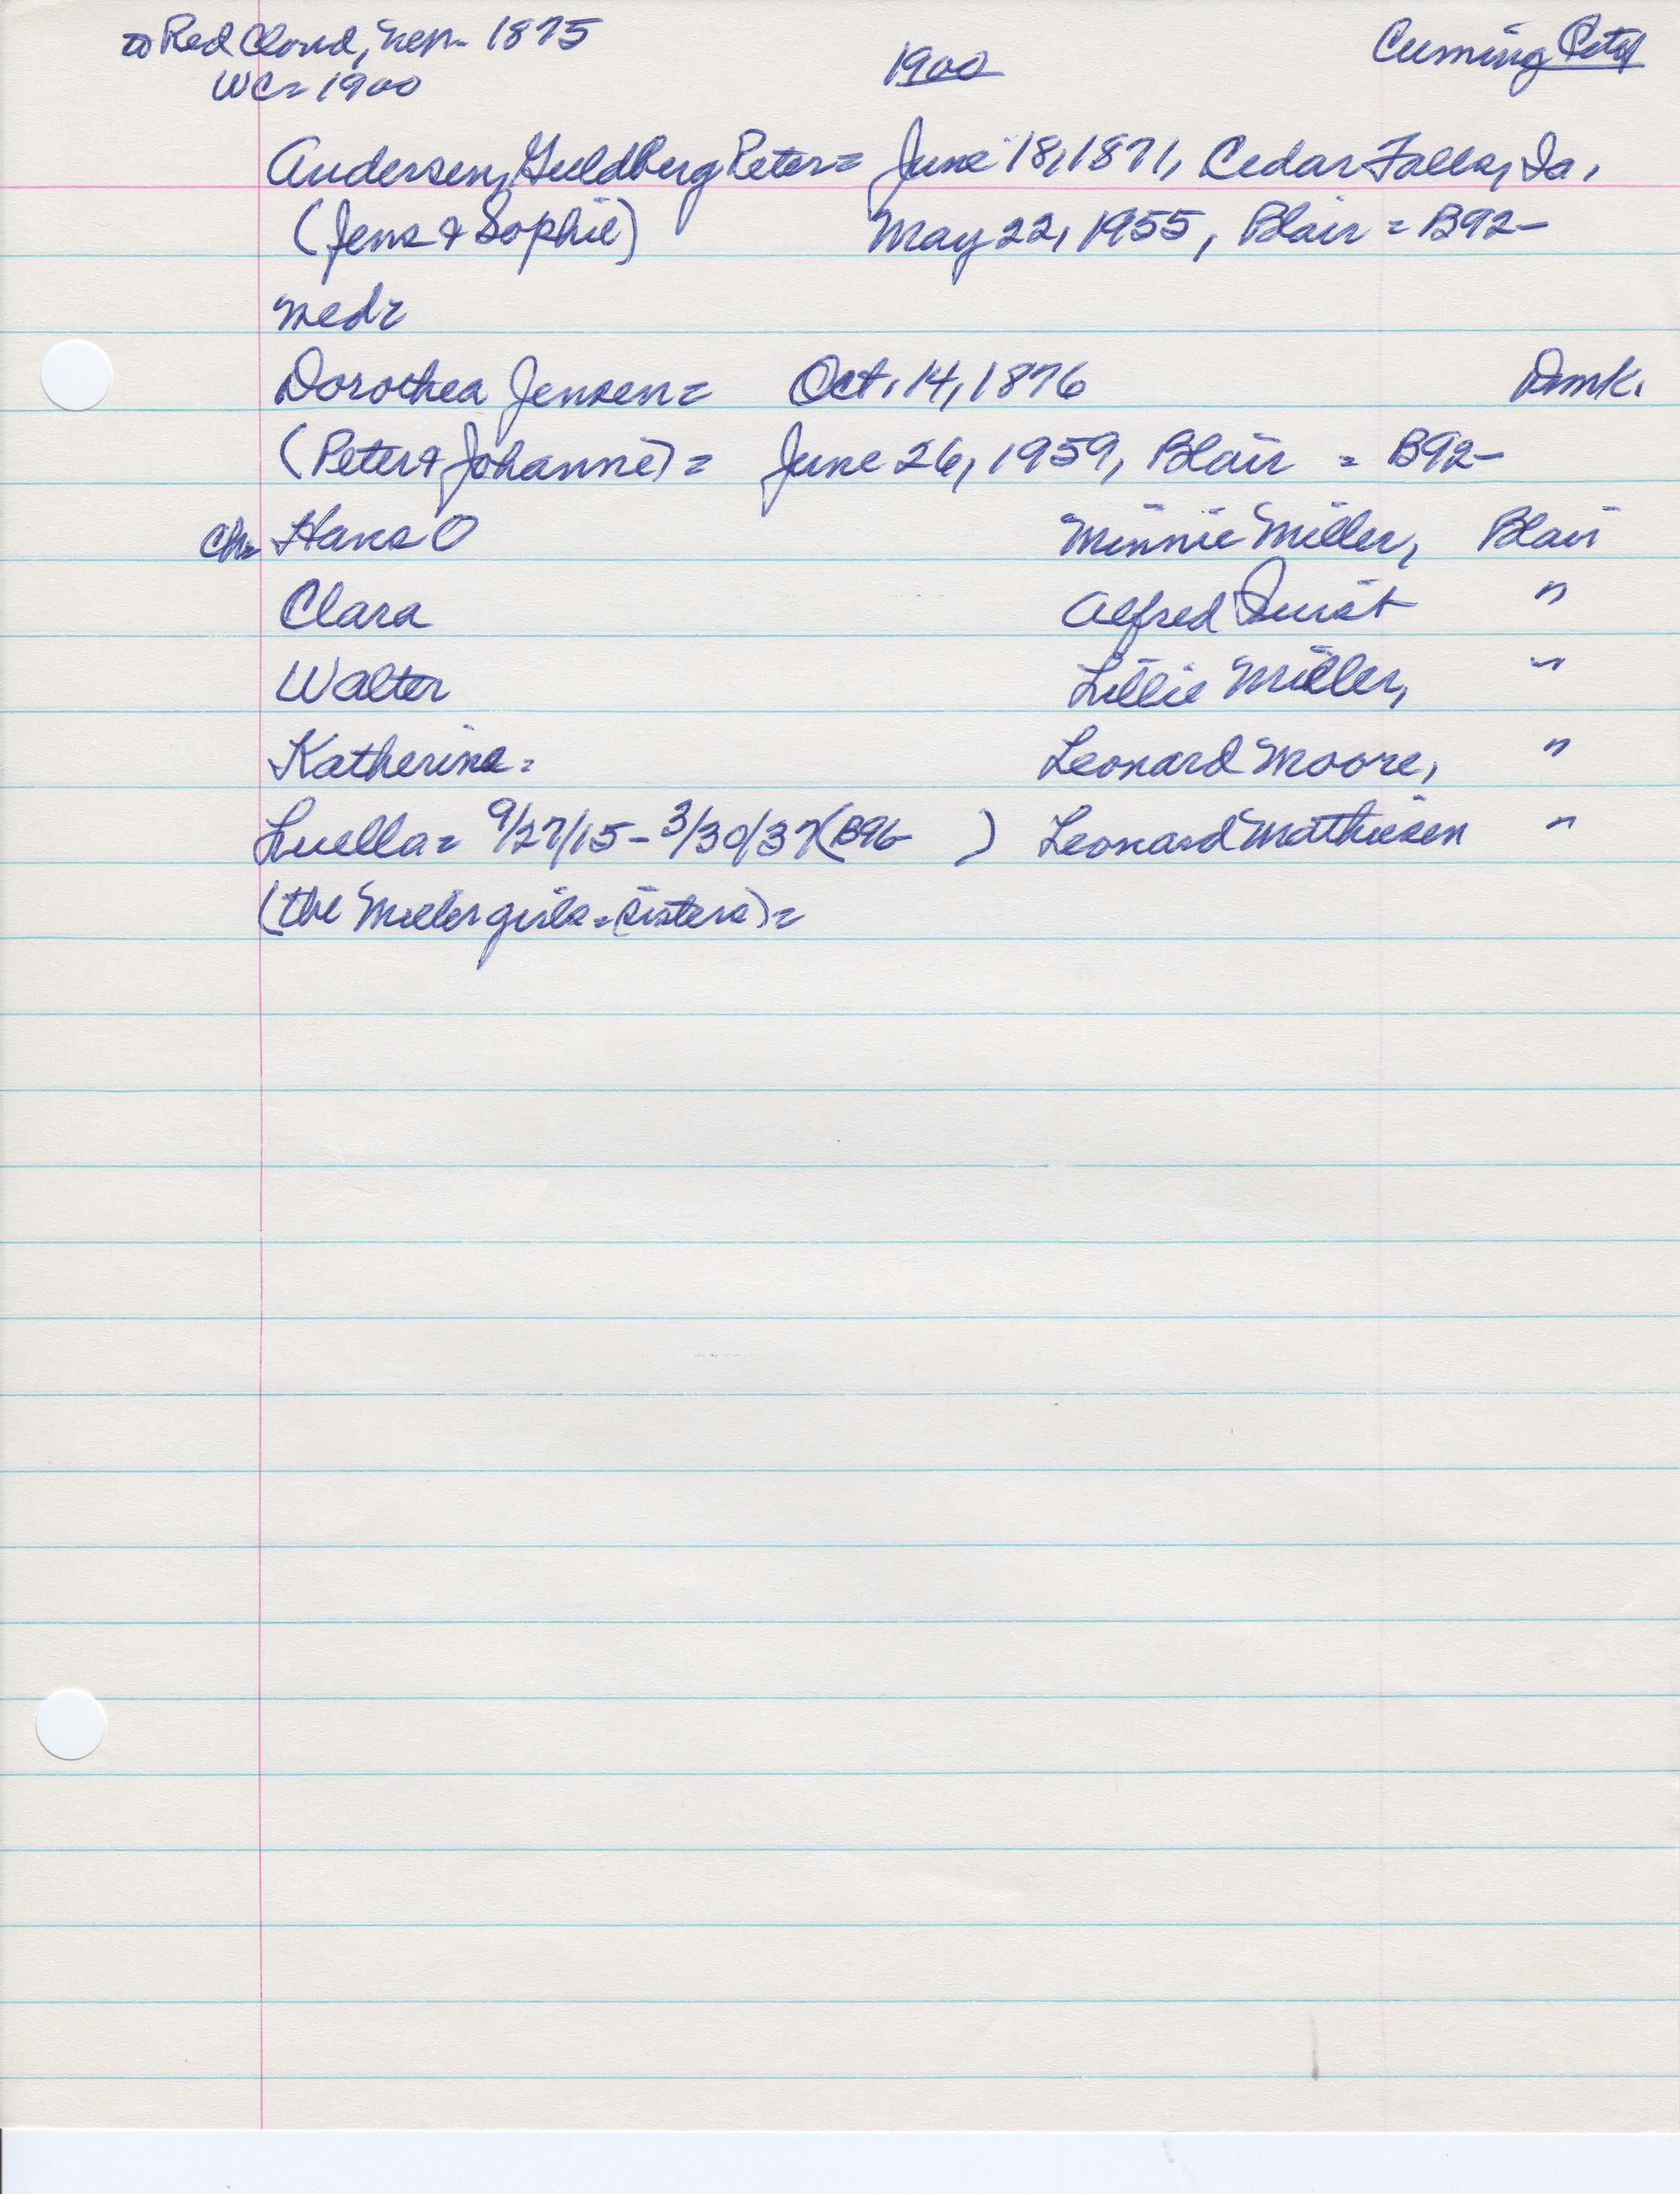 to Red Cloud, Nep. 1875
WC= 1900
1900
Cuming City
Andersen, Guldberg Peter= June 18, 1871, Cedar Falls, Ia.
(Jens & Sophie) May 22, 1955, Blair = B92-
med=
Dorothea Jensen= Oct. 14, 1876 Dmk.
(Peter & Johanne)= June 26, 1959, Blair = B92-
ch= Hans O Minnie Miller, Blair
Clara Alfred "
Walter Lillie Miller, "
Katherine= Leonard Moore, "
Luella= 9/27/15-3/30/37(B96 ) Leonard Mathiesen "
(the Miller girls=(sisters)=